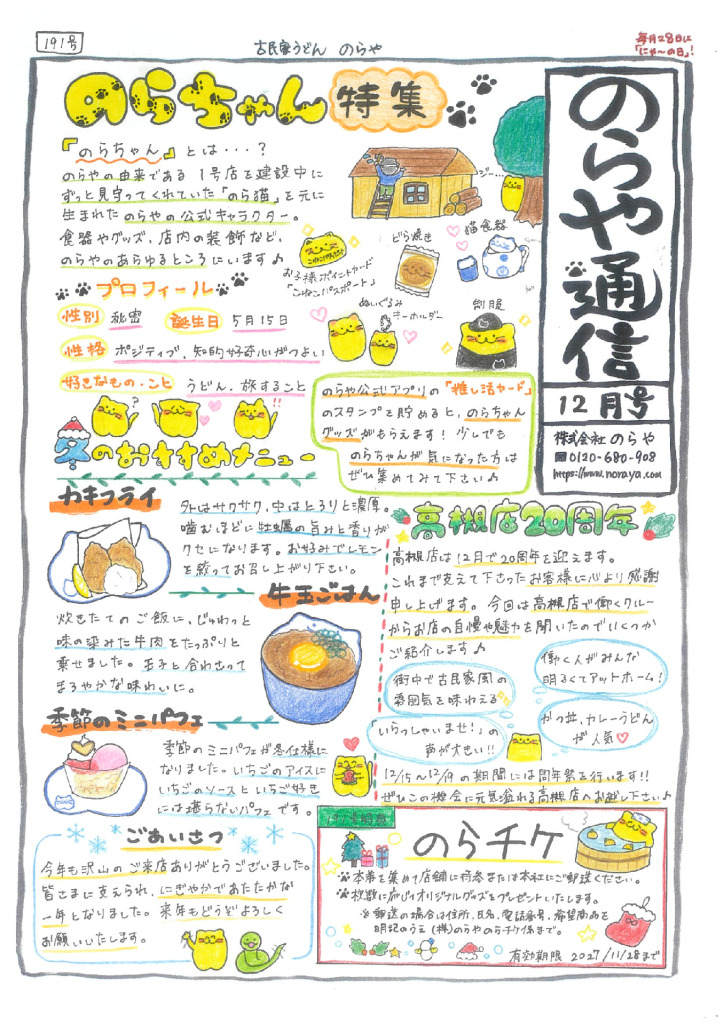 191号
古民家うどん のらや
毎月28日に
「にゃ〜の日」!
のらちゃん 特集
のらや通信
12月号
株式会社 のらや
0120-680-908
https://www.noraya.com
『のらちゃん』とは・・・?
のらやの由来である 1号店を建設中に
ずっと見守ってくれていた「のら猫」を元に
生まれたのらやの公式キャラクター。
食器やグッズ、店内の装飾など、
のらやのあらゆるところにいます♪
ジー…
お子様ポイントカード
「こねこパスポート」
どら焼き
猫食器
ぬいぐるみ
キーホルダー
制服
プロフィール
性別 秘密 誕生日 5月15日
性格 ポジティブ、知的好奇心がつよい
好きなもの・こと うどん、旅すること
?
!!
のらや公式アプリの「推し活ヤード」
のスタンプを貯めると、のらちゃん
グッズがもらえます! 少しでも
のらちゃんが気になった方は
ぜひ集めてみて下さい♪
冬のおすすめメニュー
カキフライ
外はサクサク、中はとろりと濃厚。
噛むほどに牡蠣の旨みと香りが
クセになります。お好みでレモン
を絞ってお召し上がり下さい。
牛玉ごはん
炊きたてのご飯に、じゅわっと
味の染みた牛肉をたっぷりと
乗せました。玉子と合わさって
まろやかな味わいに。
季節のミニパフェ
季節のミニパフェが冬仕様に
なりました。いちごのアイスに
いちごのソースといちご好き
には堪らないパフェです。
高槻店20周年
高槻店は12月で20周年を迎えます。
これまで支えて下さったお客様に心より感謝
申し上げます。今回は高槻店で働くクルー
からお店の自慢や魅力を聞いたのでいくつか
ご紹介します♪
街中で古民家風の
雰囲気を味わえる
働く人がみんな
明るくてアットホーム!
「いらっしゃいませ!」の
声が大きい!!
かつ丼、カレーうどん
が人気♡
12/15〜12/19の期間には周年祭を行います!!
ぜひこの機会に元気溢れる高槻店へお越し下さい♪
ごあいさつ
今年も沢山のご来店ありがとうございました。
皆さまに支えられ、にぎやかであたたかな
一年となりました。来年もどうぞよろしく
お願いいたします。
のらチケ
本券を集めて店舗に持参または本社にご郵送ください。
枚数に応じてオリジナルグッズをプレゼントいたします。
※郵送の場合は住所、氏名、電話番号、希望商品を
明記のうえ(株)のらやのらチケ係まで。
有効期限 2027/11/28まで